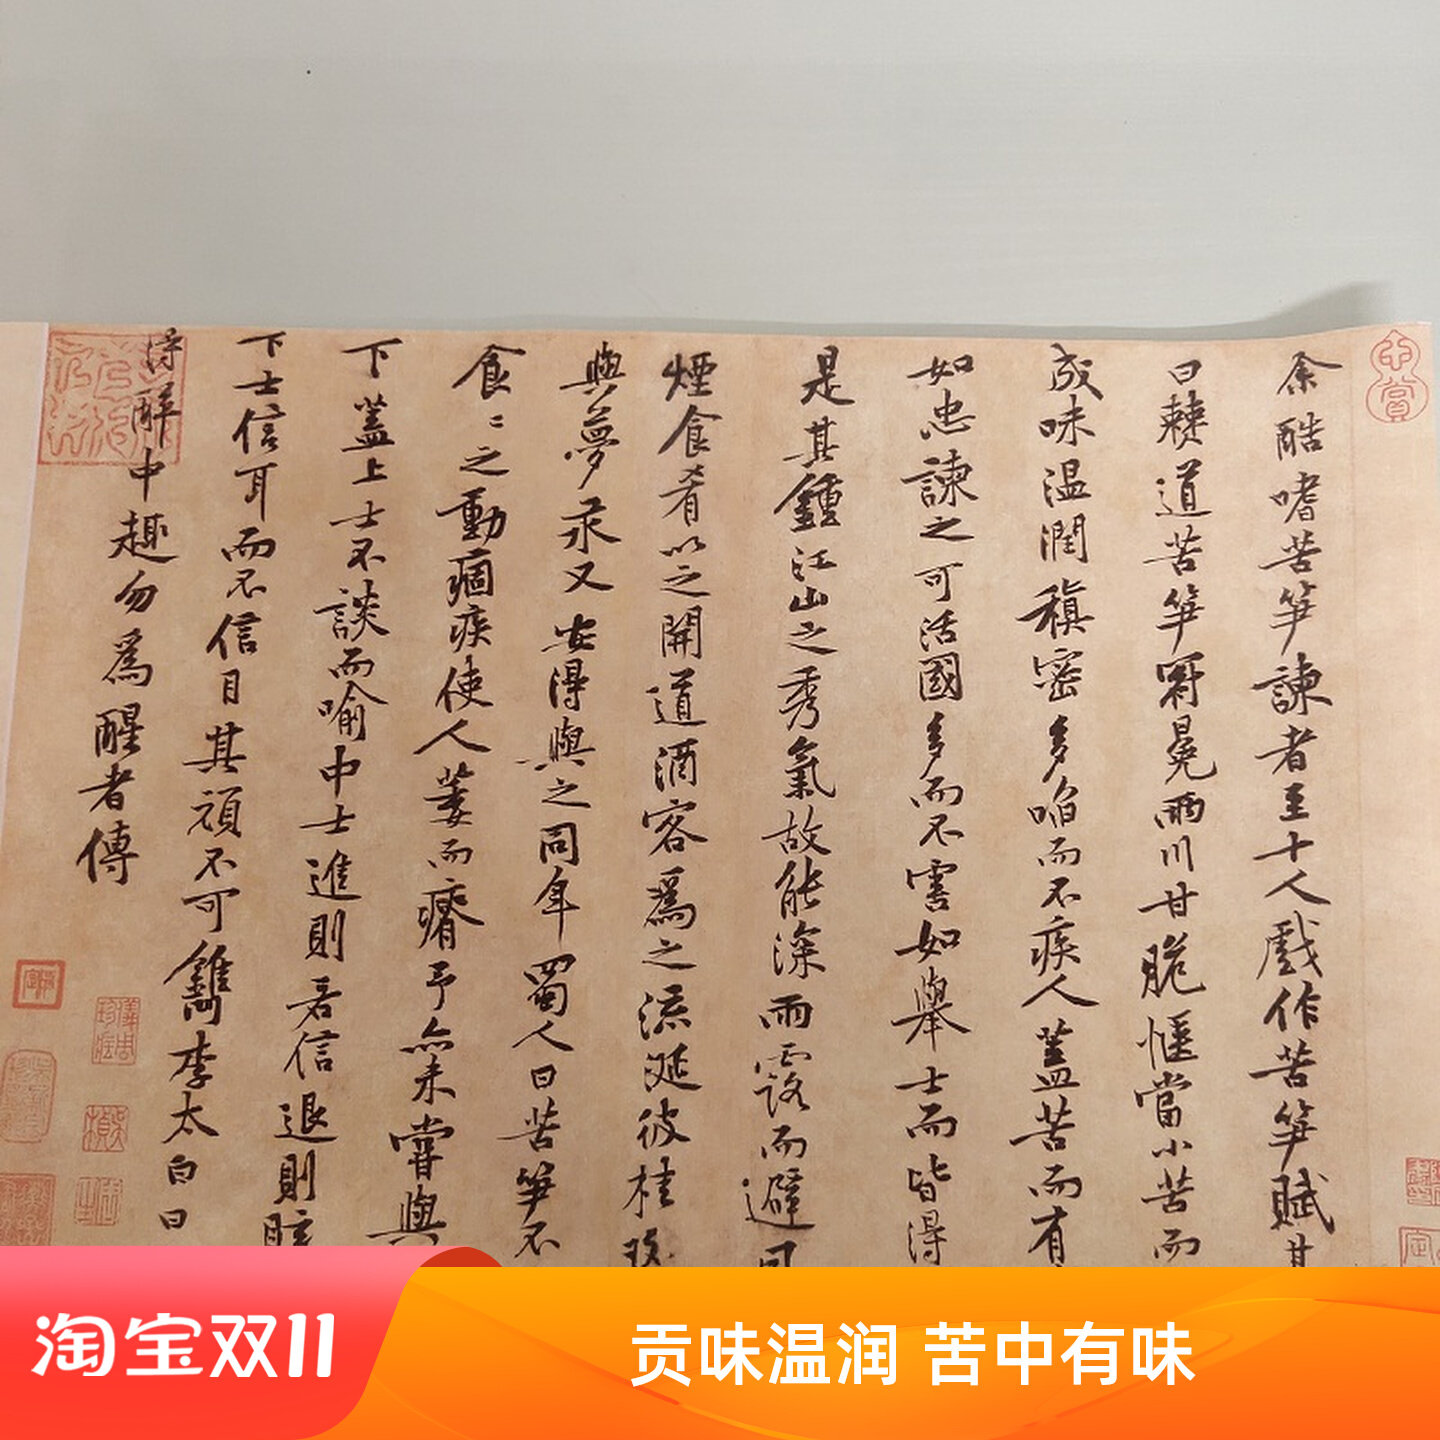 余酷嗜苦笋諫者至十人戲作苦笋賦其
曰僰道苦笋冠冕兩川甘脆愜當小苦而
成味温潤稹密多啗而不疾人蓋苦而有
如忠諫之可活國多而不害如舉士而皆得
是其鍾江山之秀氣故能深雨露而避
煙食肴以之開道酒客爲之流涎彼桂
與夢永又安得與之同年蜀人曰苦笋不
食〻之動痼疾使人萎而瘠予亦未嘗與
下蓋上士不談而喻中士進則若信退則眩
下士信耳而不信目其頑不可鐫李太白曰
得醉中趣勿爲醒者傳
淘宝双11
贡味温润 苦中有味